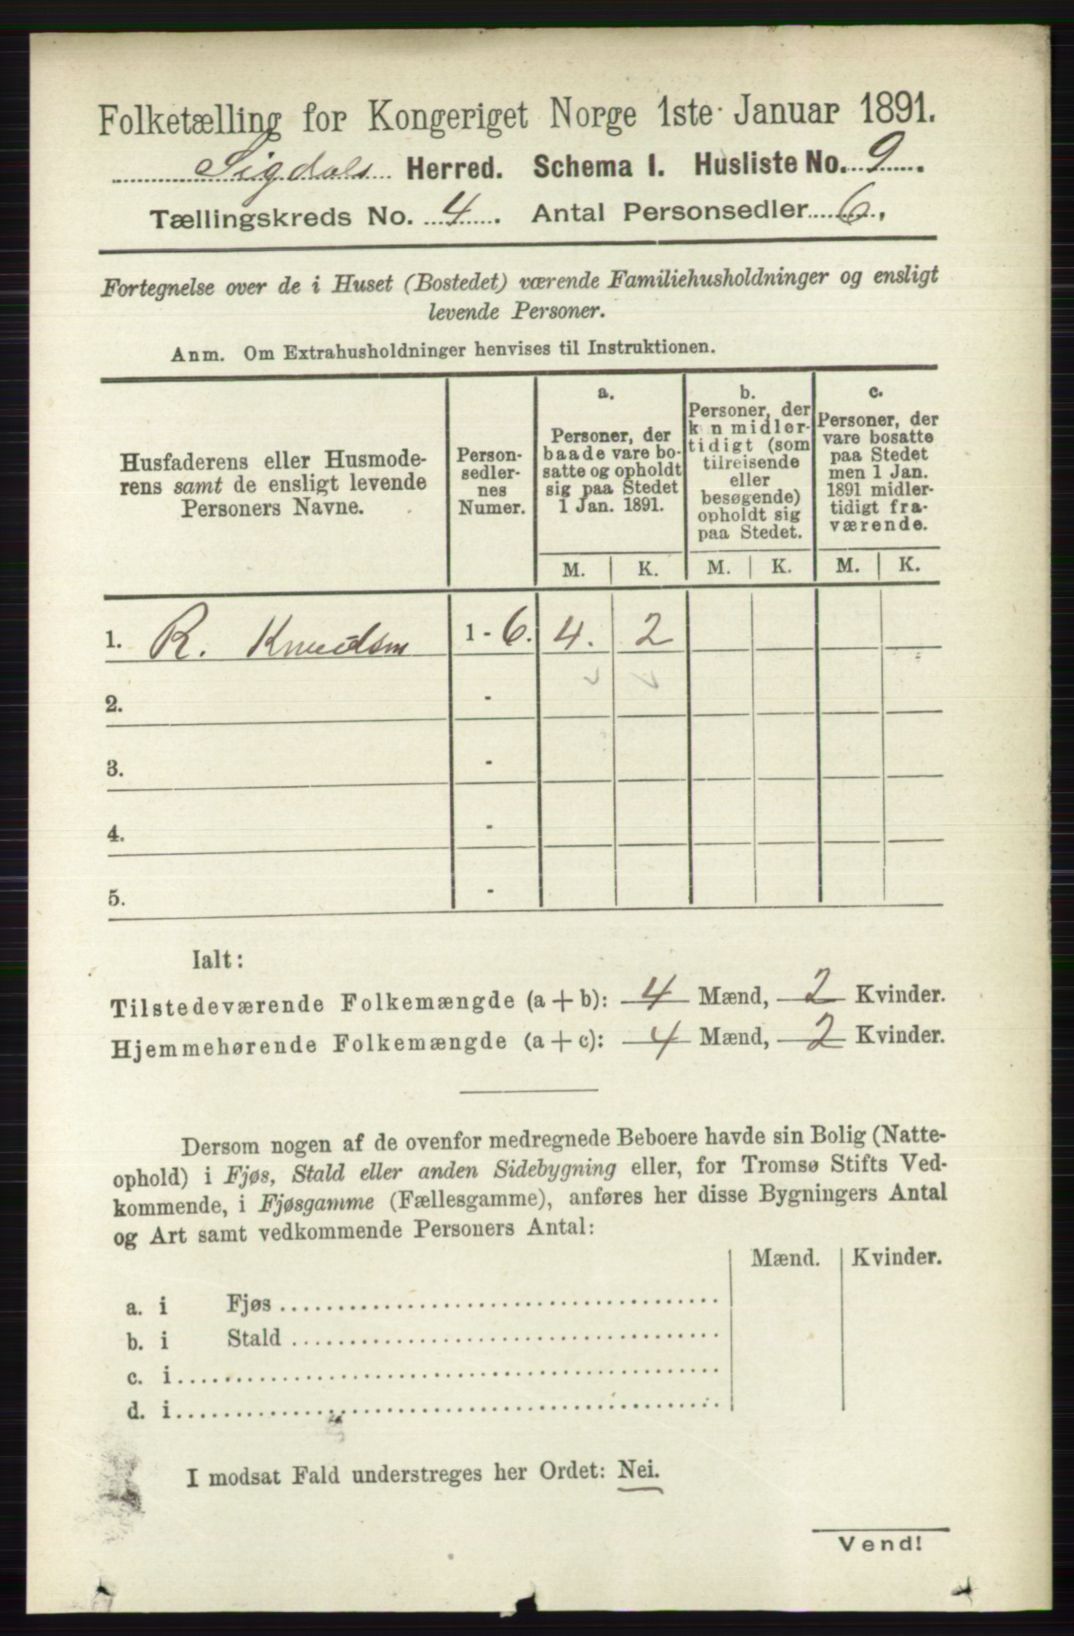 Folketælling for Kongeriget Norge 1ste Januar 1891.
Sigdals Herred. Schema I. Husliste No. 9.
Tællingskreds No. 4. Antal Personsedler 6,
Fortegnelse over de i Huset (Bostedet) værende Familiehusholdninger og ensligt
levende Personer.
Anm. Om Extrahusholdninger henvises til Instruktionen.
Husfaderens eller Husmode-
rens samt de ensligt levende
Personers Navne.
Person-
sedler-
nes
Numer.
a.
Personer, der
baade vare bo-
satte og opholdt
sig paa Stedet
1 Jan. 1891.
b.
Personer, der
kun midler-
tidigt (som
tilreisende
eller
besøgende)
opholdt sig
paa Stedet.
c.
Personer, der
vare bosatte
paa Stedet
men 1 Jan.
1891 midler-
tidigt fra-
værende.
M. K. M. K. M. K.
1. R. Knudsen 1 - 6. 4. 2
2. -
3. -
4. -
5. -
Ialt:
Tilstedeværende Folkemængde (a + b): 4 Mænd, 2 Kvinder.
Hjemmehørende Folkemængde (a + c): 4 Mænd, 2 Kvinder.
Dersom nogen af de ovenfor medregnede Beboere havde sin Bolig (Natte-
ophold) i Fjøs, Stald eller anden Sidebygning eller, for Tromsø Stifts Ved-
kommende, i Fjøsgamme (Fællesgamme), anføres her disse Bygningers Antal
og Art samt vedkommende Personers Antal:
Mænd. Kvinder.
a. i Fjøs
b. i Stald
c. i
d. i
I modsat Fald understreges her Ordet: Nei.
Vend!